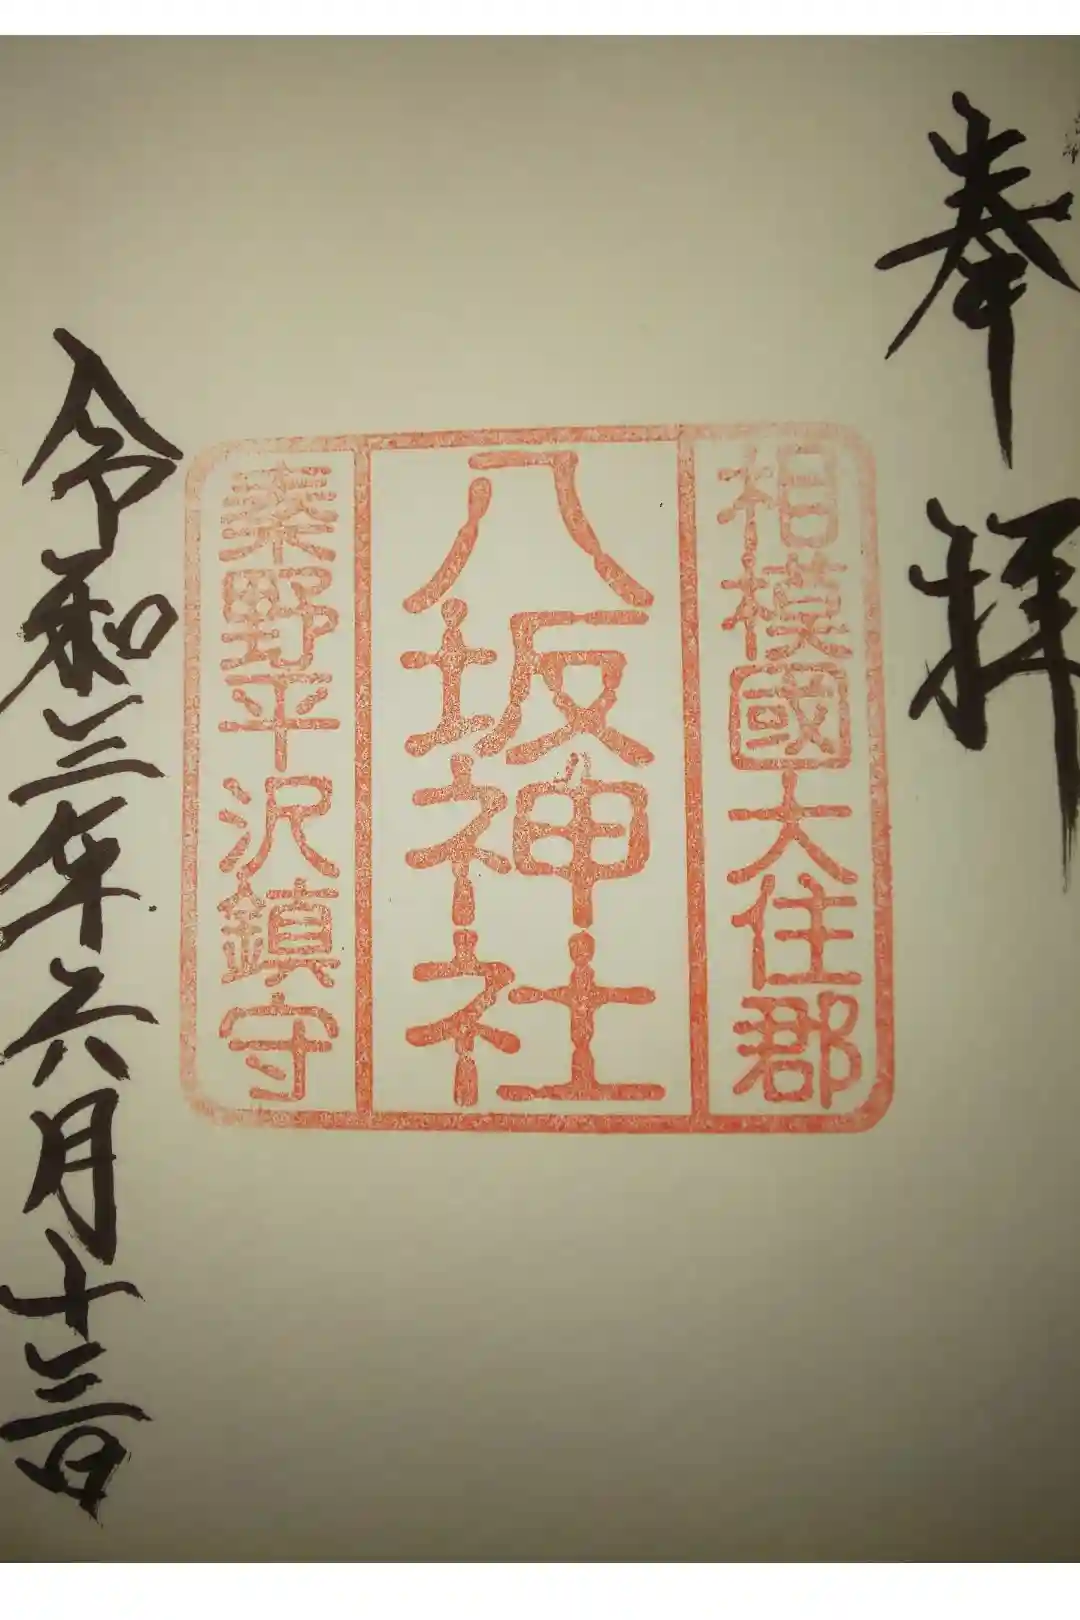 奉拝
相模國大住郡
八坂神社
秦野平沢鎮守
令和三年六月十三日